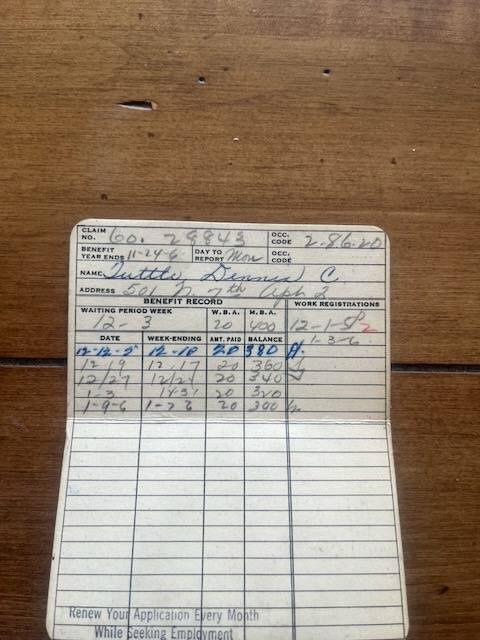 CLAIM NO. 60. 28843 OCC. CODE 2-86.20
BENEFIT YEAR ENDS 11-24-6 DAY TO REPORT Mon OCC. CODE
NAME Tuttle Dennis C.
ADDRESS 501 N 7th Apt 2
BENEFIT RECORD WORK REGISTRATIONS
WAITING PERIOD WEEK W.B.A. M.B.A.
12-3 20 400 12-1-5
DATE WEEK-ENDING AMT. PAID BALANCE 1-3-6
12-12-5 12-10 20 380
12/19 12/17 20 360
12/27 12/24 20 340
1-3 12-31 20 320
1-9-6 20 300
Renew Your Application Every Month
While Seeking Employment